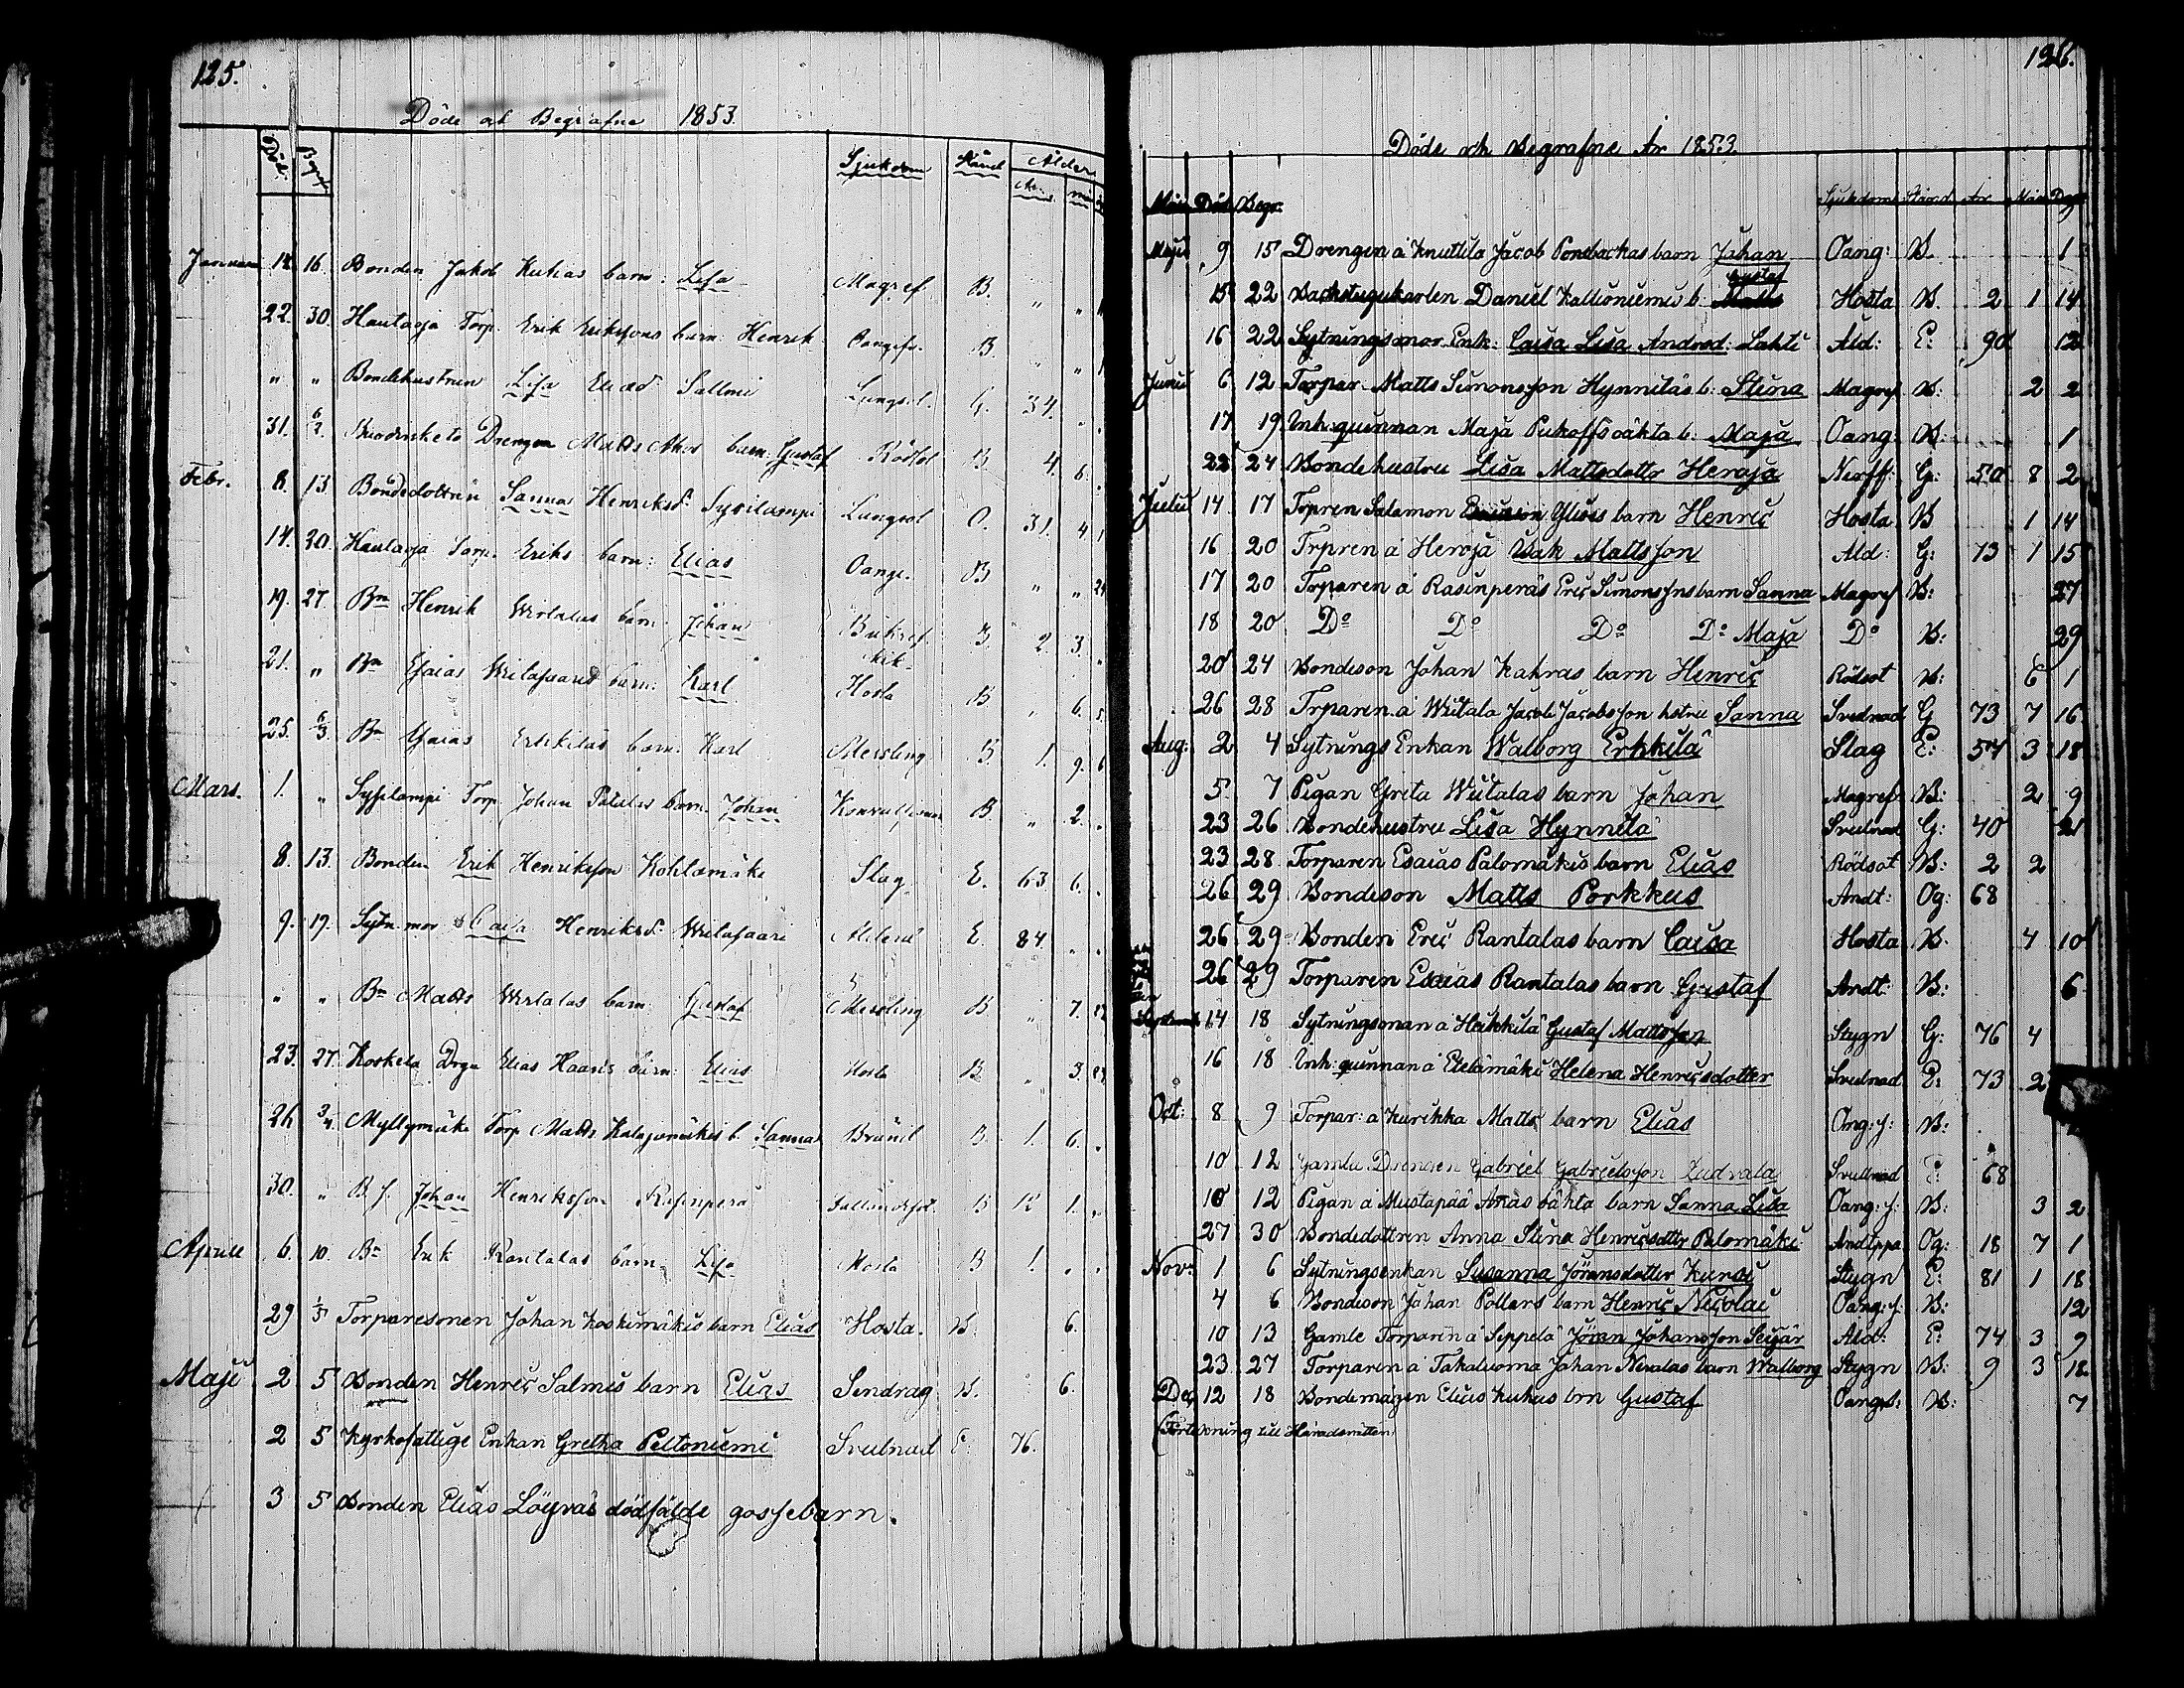 125.
Döde och Begrafne 1853.
Död. Begrof Sjukdom Stånd Ålder
År. mån
Januari 14. 16. Bonden Jakob Kukas barn: Lisa Magref B. " "
22. 30. Hautaoja Torp. Erik Erikssons barn: Henrik Oangifv. B. " "
" " Bondehustrun Lisa Eliasdr Sallmi Lungsot. G. 34.
31. 6/2. Drengen Matts barn: Gustaf Rödsot B 4. 6.
Febr. 8. 13 Bondedottren Sanna Henriksdr Sysilampi Lungsot O. 31. 4
14. 20. Hautaoja Torp. Eriks barn: Elias Oangi. B " " 24
19. 27. Bn Henrik Wirtalas barn: Johan B. 2. 3.
21. " Bn Esaias barn: Karl Hosta B " 6. 5
25. 6/3. Bn Esaias Erkkiläs barn: Karl Messling B. 1. 9. 6
Mars. 1. " Sysilampi Torp. Johan barn. Johan B " 2.
8. 13. Bonden Erik Henriksson Kohlamäki Slag E. 63 6.
9. 19. Sytn.mor Caisa Henriksdr E. 84. " "
" " Bn Matts Wirtalas barn: Gustaf Messling B " 7.
23. 27. Koskela Drgn Elias Haavis barn: Elias Hosta B " 3.
26 3/4 Myllymäki Torp Matts b. Sanna Bränd B. 1. 6.
30. " B.s. Johan Henriksson Rasinperä B 12 1.
Aprill 6. 10. Bn Erik Rantalas barn Lisa Hosta B 1.
29 1/5 Torparesonen Johan Koskimäkis barn Elias Hosta. B. 6.
Maji 2 5 Bonden Henric Salmis barn Elias Sendrag B. 6.
2 5 Kyrkofattige Enkan Gretha Peltoniemi Svulnad E. 76.
3 5 Bonden Elias Löyväs dödfälde gossebarn.
126.
Döde och Begrafne År 1853.
Mån Död Begr. Sjukdom Stånd År Mån Dagar
Maji 9 15 Drengen á Knuttila Jacob Ponsbackas barn Johan Oang: B. 1
Gustaf
15 22 Backstugukarlen Daniel Kallioniemis b. Matts Hosta B. 2 1 14
16 22 Sytningsmor Enk: Caisa Lisa Andrsd: Lahti Ald: E: 90 12
Junii 6 12 Torpar. Matts Simonsson Hynniläs b: Stina Magref B: 2 2
17 19 Inh:quinnan Maja Pukoffs oäkta b: Maja Oang: B: 1
22 24 Bondehustru Lisa Mattsdottr Heroja Nerff: G: 50 8 2
Julii 14 17 Torpren Salamon Ylisis barn Henric Hosta B 1 14
16 20 Trpren á Heroja Isak Mattsson Ald: G: 73 1 15
17 20 Torparen á Rasinperäs Eric Simonssns barn Sanna Magref B: 27
18 20 Do Do Do Do Maja Do B: 29
20 24 Bondeson Johan Kahras barn Henric Rödsot B: 6 1
26 28 Trparen á Wiitala Jacob Jacobsson hstru Sanna Svulnad G 73 7 16
Aug: 2 4 Sytnings Enkan Walborg Erkkilä Slag E: 54 3 18
5 7 Pigan Greta Wiitalas barn Johan Magref B: 2 9
23 26 Bondehustru Lisa Hynnilä Svulnad G: 40 21
23 28 Torparen Esaias Palomäkis barn Elias Rödsot B: 2 2
26 29 Bondeson Matts Porkkus Andt: Og: 68
26 29 Bonden Eric Rantalas barn Caisa Hosta B. 4 10
26 29 Torparen Esaias Rantalas barn Gustaf Andt: B: 6
Septemb 14 18 Sytningsman á Heikkilä Gustaf Mattsson Stygn G: 76 4
16 18 Inh:quinnan á Etelämäki Helena Henricsdotter Svulnad E: 73 2
Oct: 8 9 Torpar: á Kurikka Matts barn Elias Ong:f: B:
10 12 Gamla Drengen Gabriel Gabrielsson Ludvala Svullnad E: 68
10 12 Pigan á Mustapää Anas oäkta barn Sanna Lisa Oang:f: B: 3 2
27 30 Bondedottren Anna Stina Henricsdottr Palomäki Andtppa Og: 18 7 1
Novr 1 6 Sytningsenkan Susanna Jöransdotter Kursi Stygn E: 81 1 18
4 6 Bondeson Johan Pollars barn Henric Nicolai Oang:f: B: 12
10 13 Gamle Torparen á Seppelä Jöran Johansson Seijär Ald: E: 74 3 9
23 27 Torparen á Takaluoma Johan Nevalas barn Walborg Stygn B: 9 3 18
Dec 12 18 Bondemågen Elias Kukus brn Gustaf Oangf: B: 7
(Förtekning till Häradsrätten)